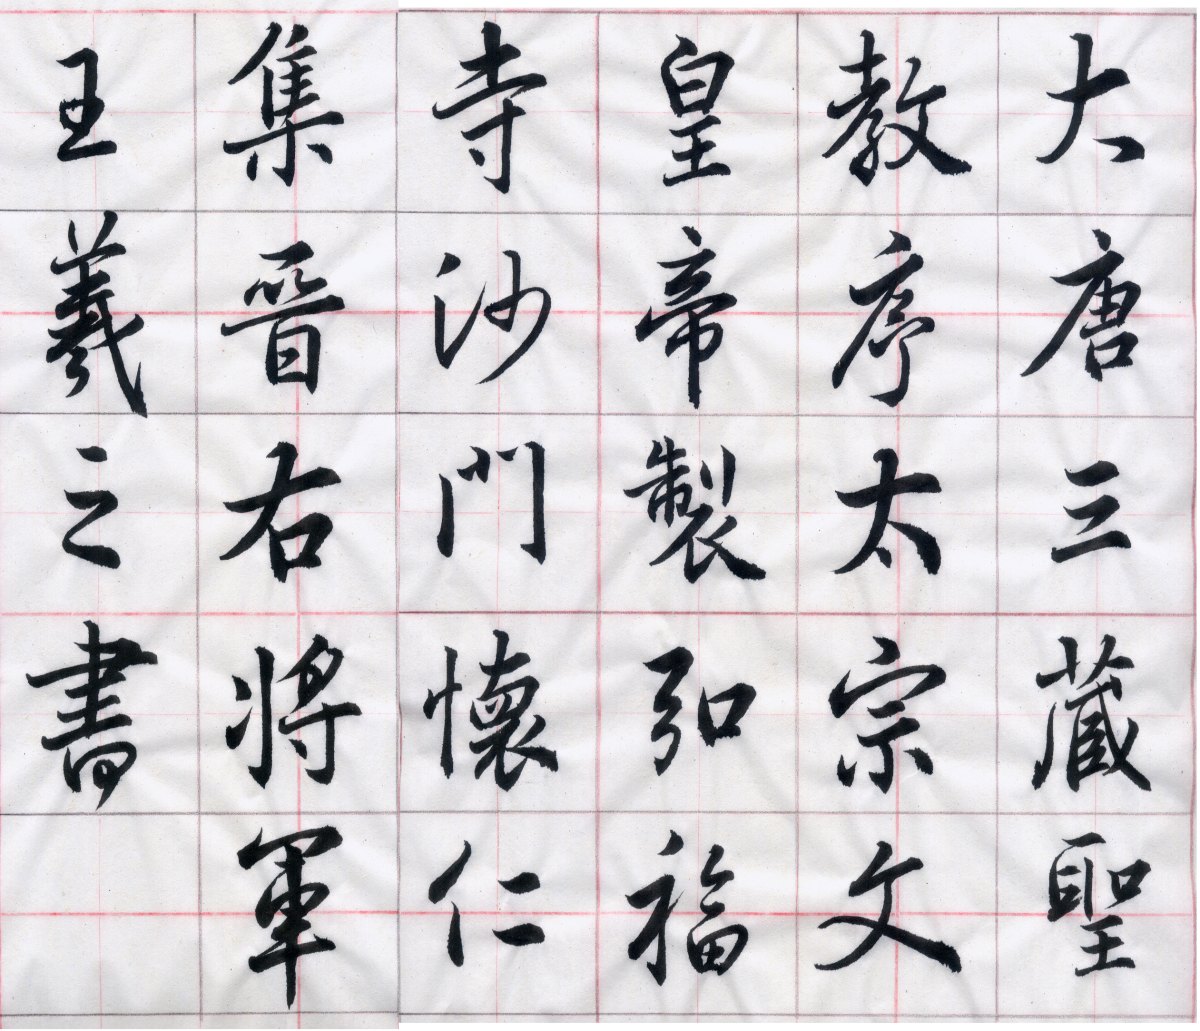 大唐三藏聖
教序太宗文
皇帝製弘福
寺沙門懷仁
集晉右將軍
王羲之書